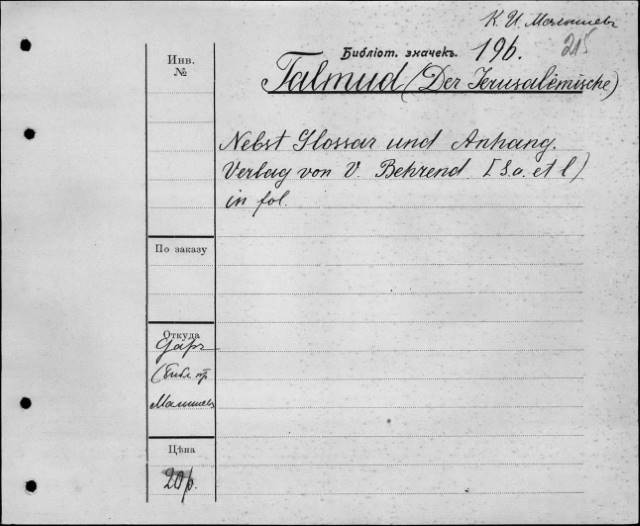 К. И. Малышевъ
Библіот. значекъ. 19б. 215
Инв.
№
Talmud (Der Jerusalemische)
Nebst Glossar und Anhang.
Verlag von V. Behrend [S. a. et l)
in fol.
По заказу
Откуда
Даръ
(Библ. пр
Малышев
Цѣна
20р.